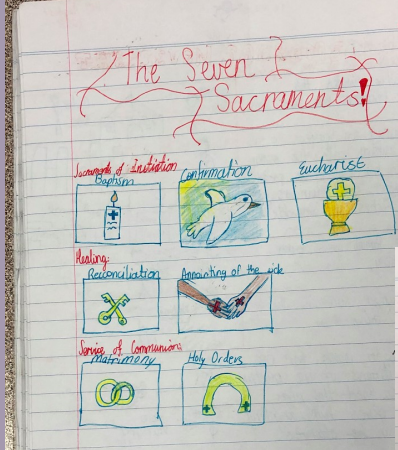 The Seven
Sacraments!
Sacraments of Initiation
Baptism
Confirmation
Eucharist
Healing:
Reconciliation
Annointing of the sick
Service of Communion:
Matrimony
Holy Orders